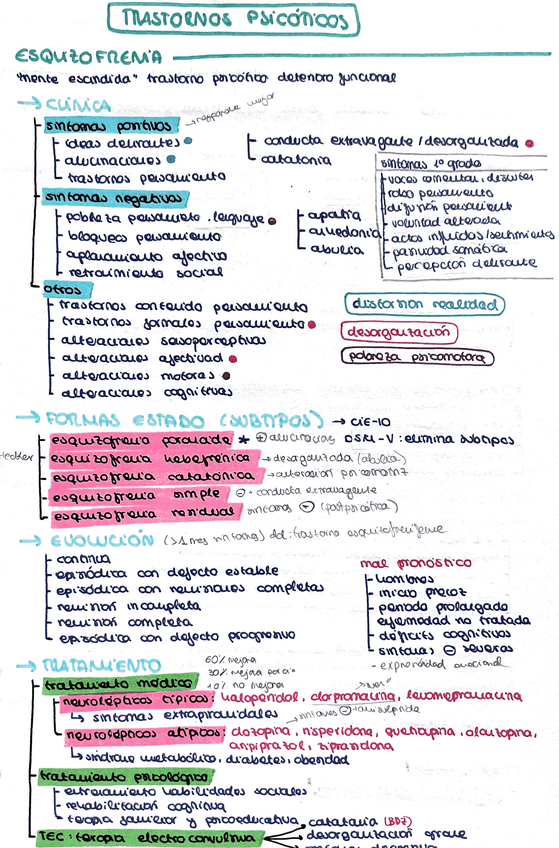 TRASTORNOS PSICÓTICOS
ESQUIZOFRENIA
"mente escindida" trastorno psicótico deterioro funcional
→ CLÍNICA
síntomas positivos → responde mejor
ideas delirantes
alucinaciones
trastornos pensamiento
conducta extravagante / desorganizada
catatonia
síntomas 1º grado
voces comentan, discuten
robo pensamiento
difusión pensamient
voluntad alterada
actos influidos/sentimientos
pasividad somática
percepción delirante
síntomas negativos
pobreza pensamiento, lenguaje
bloqueos pensamiento
aplanamiento afectivo
retraimiento social
apatía
anhedonia
abulia
otros
trastornos contenido pensamiento
trastornos formales pensamiento
alteraciones sensoperceptivas
alteraciones afectividad
alteraciones motoras
alteraciones cognitivas
distorsión realidad
desorganización
pobreza psicomotora
→ FORMAS ESTADO (SUBTIPOS) → CIE-10
esquizofrenia paranoide * ⊕ alucinaciones DSM-V: elimina subtipos
esquizofrenia hebefrénica → desorganizada (abulia)
esquizofrenia catatónica → alteración psicomotriz
esquizofrenia simple ⊖ · conducta extravagante
esquizofrenia residual síntomas ⊖ (postpsicótica)
→ EVOLUCIÓN (>1 mes síntomas) dd: trastorno esquizofreniforme
continua
episódica con defecto estable
episódica con remisiones completas
remisión incompleta
remisión completa
episódica con defecto progresivo
mal pronóstico
hombres
inicio precoz
periodo prolongado
enfermedad no tratada
déficits cognitivos
síntomas ⊖ severos
- expresividad emocional
→ TRATAMIENTO
60% mejora
30% mejora parcial
10% no mejora
tratamiento médico
neurolépticos típicos: haloperidol, clorpromacina, levomepromacina
↳ síntomas extrapiramidales
síntomas ⊖ → amisulprida
neurolépticos atípicos: clozapina, risperidona, quetiapina, olanzapina,
aripiprazol, ziprasidona
↳ síndrome metabólico, diabetes, obesidad
tratamiento psicológico
entrenamiento habilidades sociales
rehabilitación cognitiva
terapia familiar y psicoeducativa
TEC: terapia electroconvulsiva
catatonia (BDZ)
desorganización grave